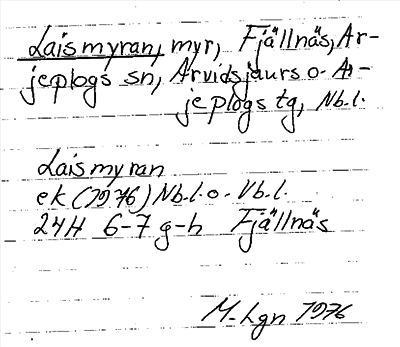 Laismyran, myr, Fjällnäs, Ar-
jeplogs sn, Arvidsjaurs o. Ar-
jeplogs tg, Nb.l.
Laismyran
ek (1976) Nb.l. o. Vb.l.
24H 6-7 g-h Fjällnäs
M. Lgn 1976